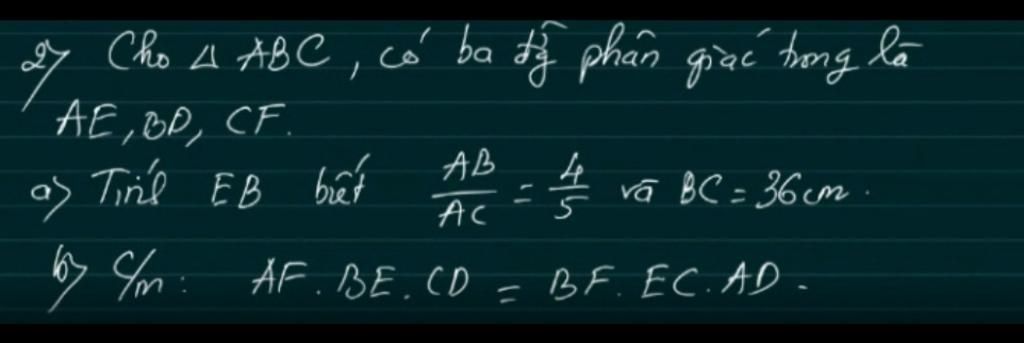 2) Cho Δ ABC, có ba đg̃ phân giác trong là
AE, BD, CF.
a) Tính EB biết AB/AC = 4/5 và BC = 36cm.
b) C/m: AF. BE. CD = BF. EC. AD.